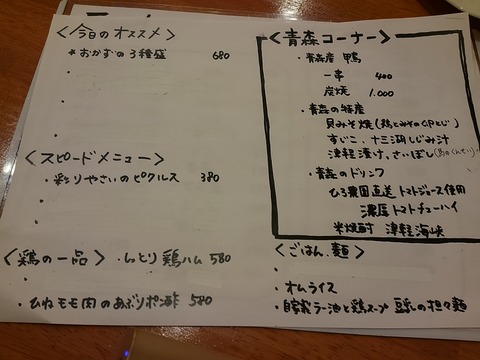 <今日のオススメ>
* おかずの3種盛 680
・
・
・
<スピードメニュー>
・彩りやさいのピクルス 380
・
・
<鶏の一品> ・しっとり鶏ハム 580
・
・ひねモモ肉のあぶりポン酢 580
<青森コーナー>
・青森産 鴨
一串 400
炭焼 1.000
・青森の特産
貝みそ焼(鶏とみその卵とじ)
すじこ、十三湖しじみ汁
津軽漬け、さいぼし
・青森のドリンク
ひろ農園直送 トマトジュース使用
濃厚トマトチューハイ
米焼酎 津軽海峡
<ごはん、麺>
・
・オムライス
・自家製ラー油と鶏スープ 豆乳の担々麺